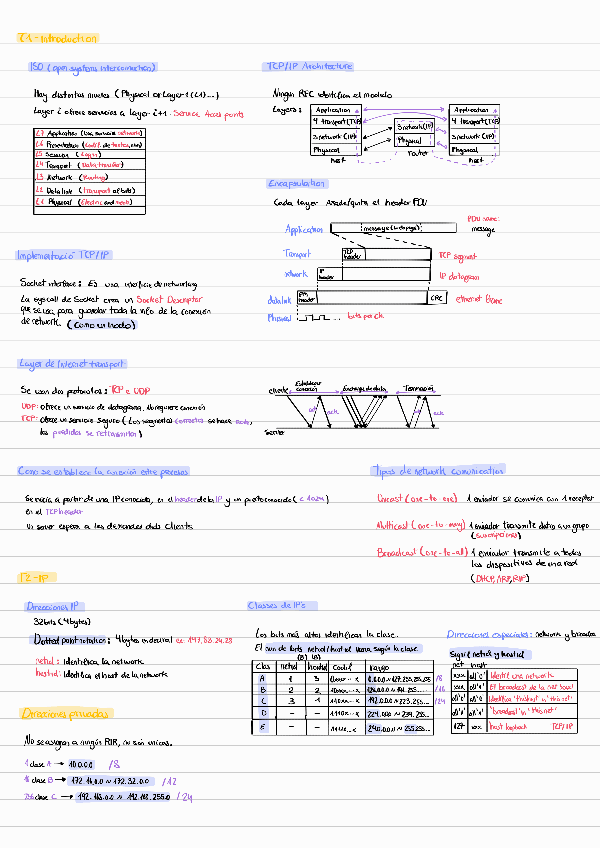 T.1 - Introduction
ISO (open systems interconnection)
Hay distintos niveles (Physical or Layer-1 (L1)...)
Layer i ofrece servicios a Layer i+1. Service Access points
L7 Application (Use services network)
L6 Presentation
L5 Session (Login)
L4 Transport (Data transfer)
L3 Network (Routing)
L2 Data link (transport of bits)
L1 Physical (Electric and mech)
TCP/IP Architecture
Ningún RFC identifica el modelo
Layers:
Application
4 transport (TCP)
3 network (IP)
Physical
host
3 network (IP)
Physical
router
Application
4 transport (TCP)
3 network (IP)
Physical
host
Encapsulation
Cada layer añade/quita el header PDU
PDU name:
Application
message (webpage)
message
Transport
TCP header
TCP segment
network
IP header
IP datagram
data link
header
CRC
ethernet frame
Physical
bits per clk
Implementació TCP/IP
Socket interface: Es una interficie de networking
La syscall de Socket crea un Socket Descriptor
que se usa para guardar toda la info de la conexión
de network. (como un inodo)
Layer de Internet transport
Se usan dos protocolos: TCP e UDP
UDP: ofrece un servicio de datagrama. No requiere conexión
TCP: ofrece un servicio seguro (Los segmentos correctos se hace ack,
los perdidos se retransmiten)
cliente
Establecer conexión
Exchange de data
Terminación
ack
ack
ack
Server
Como se establece la conexión entre procesos
Se inicia a partir de una IP conocida, en el header de la IP y un puerto conocido (< 1024)
en el TCP header
Un server espera a las demandas de los clients
Tipos de network comunication
Unicast (one-to one) 1 enviador se comunica con 1 receptor
Multicast (one-to-many) 1 enviador transmite datos a un grupo
(suscripciones)
Broadcast (one-to-all) 1 enviador transmite a todos
los dispositivos de una red
(DHCP, ARP, RIP)
T2 - IP
Direcciones IP
32 bits (4 bytes)
Dotted point notation: 4 bytes en decimal ex: 147.83.24.28
netid: identifica la network
hostid: identifica el host de la network
Clases de IP's
Los bits más altos identifican la clase.
El num de bits netid/hostid varia según la clase
(B) (B)
Clas netid hostid Codif rango
A 1 3 0xxx...x 0.0.0.0 ~ 127.255.255.255 /8
B 2 2 10xxx...x 128.0.0.0 ~ 191.255.... /16
C 3 1 110xx...x 192.0.0.0 ~ 223.255... /24
D - - 1110x...x 224.0.0.0 ~ 239.255...
E - - 1111x...x 240.0.0.0 ~ 255.255...
Direcciones especiales: network y broadcast
Según netid y hostid
net host
xxx all '0' Identif una network
xxx all '1' El broadcast de la net
all '0' all '0' Identifica "this host" in "this net"
all '1' all '1' "broadcast" in "this net"
127 xxx host loopback TCP/IP
Direcciones privadas
No se asignan a ningún RIR, no son unicas.
1 clase A → 10.0.0.0 /8
16 clase B → 172.16.0.0 ~ 172.32.0.0 /12
256 clase C → 192.168.0.0 ~ 192.168.255.0 /24